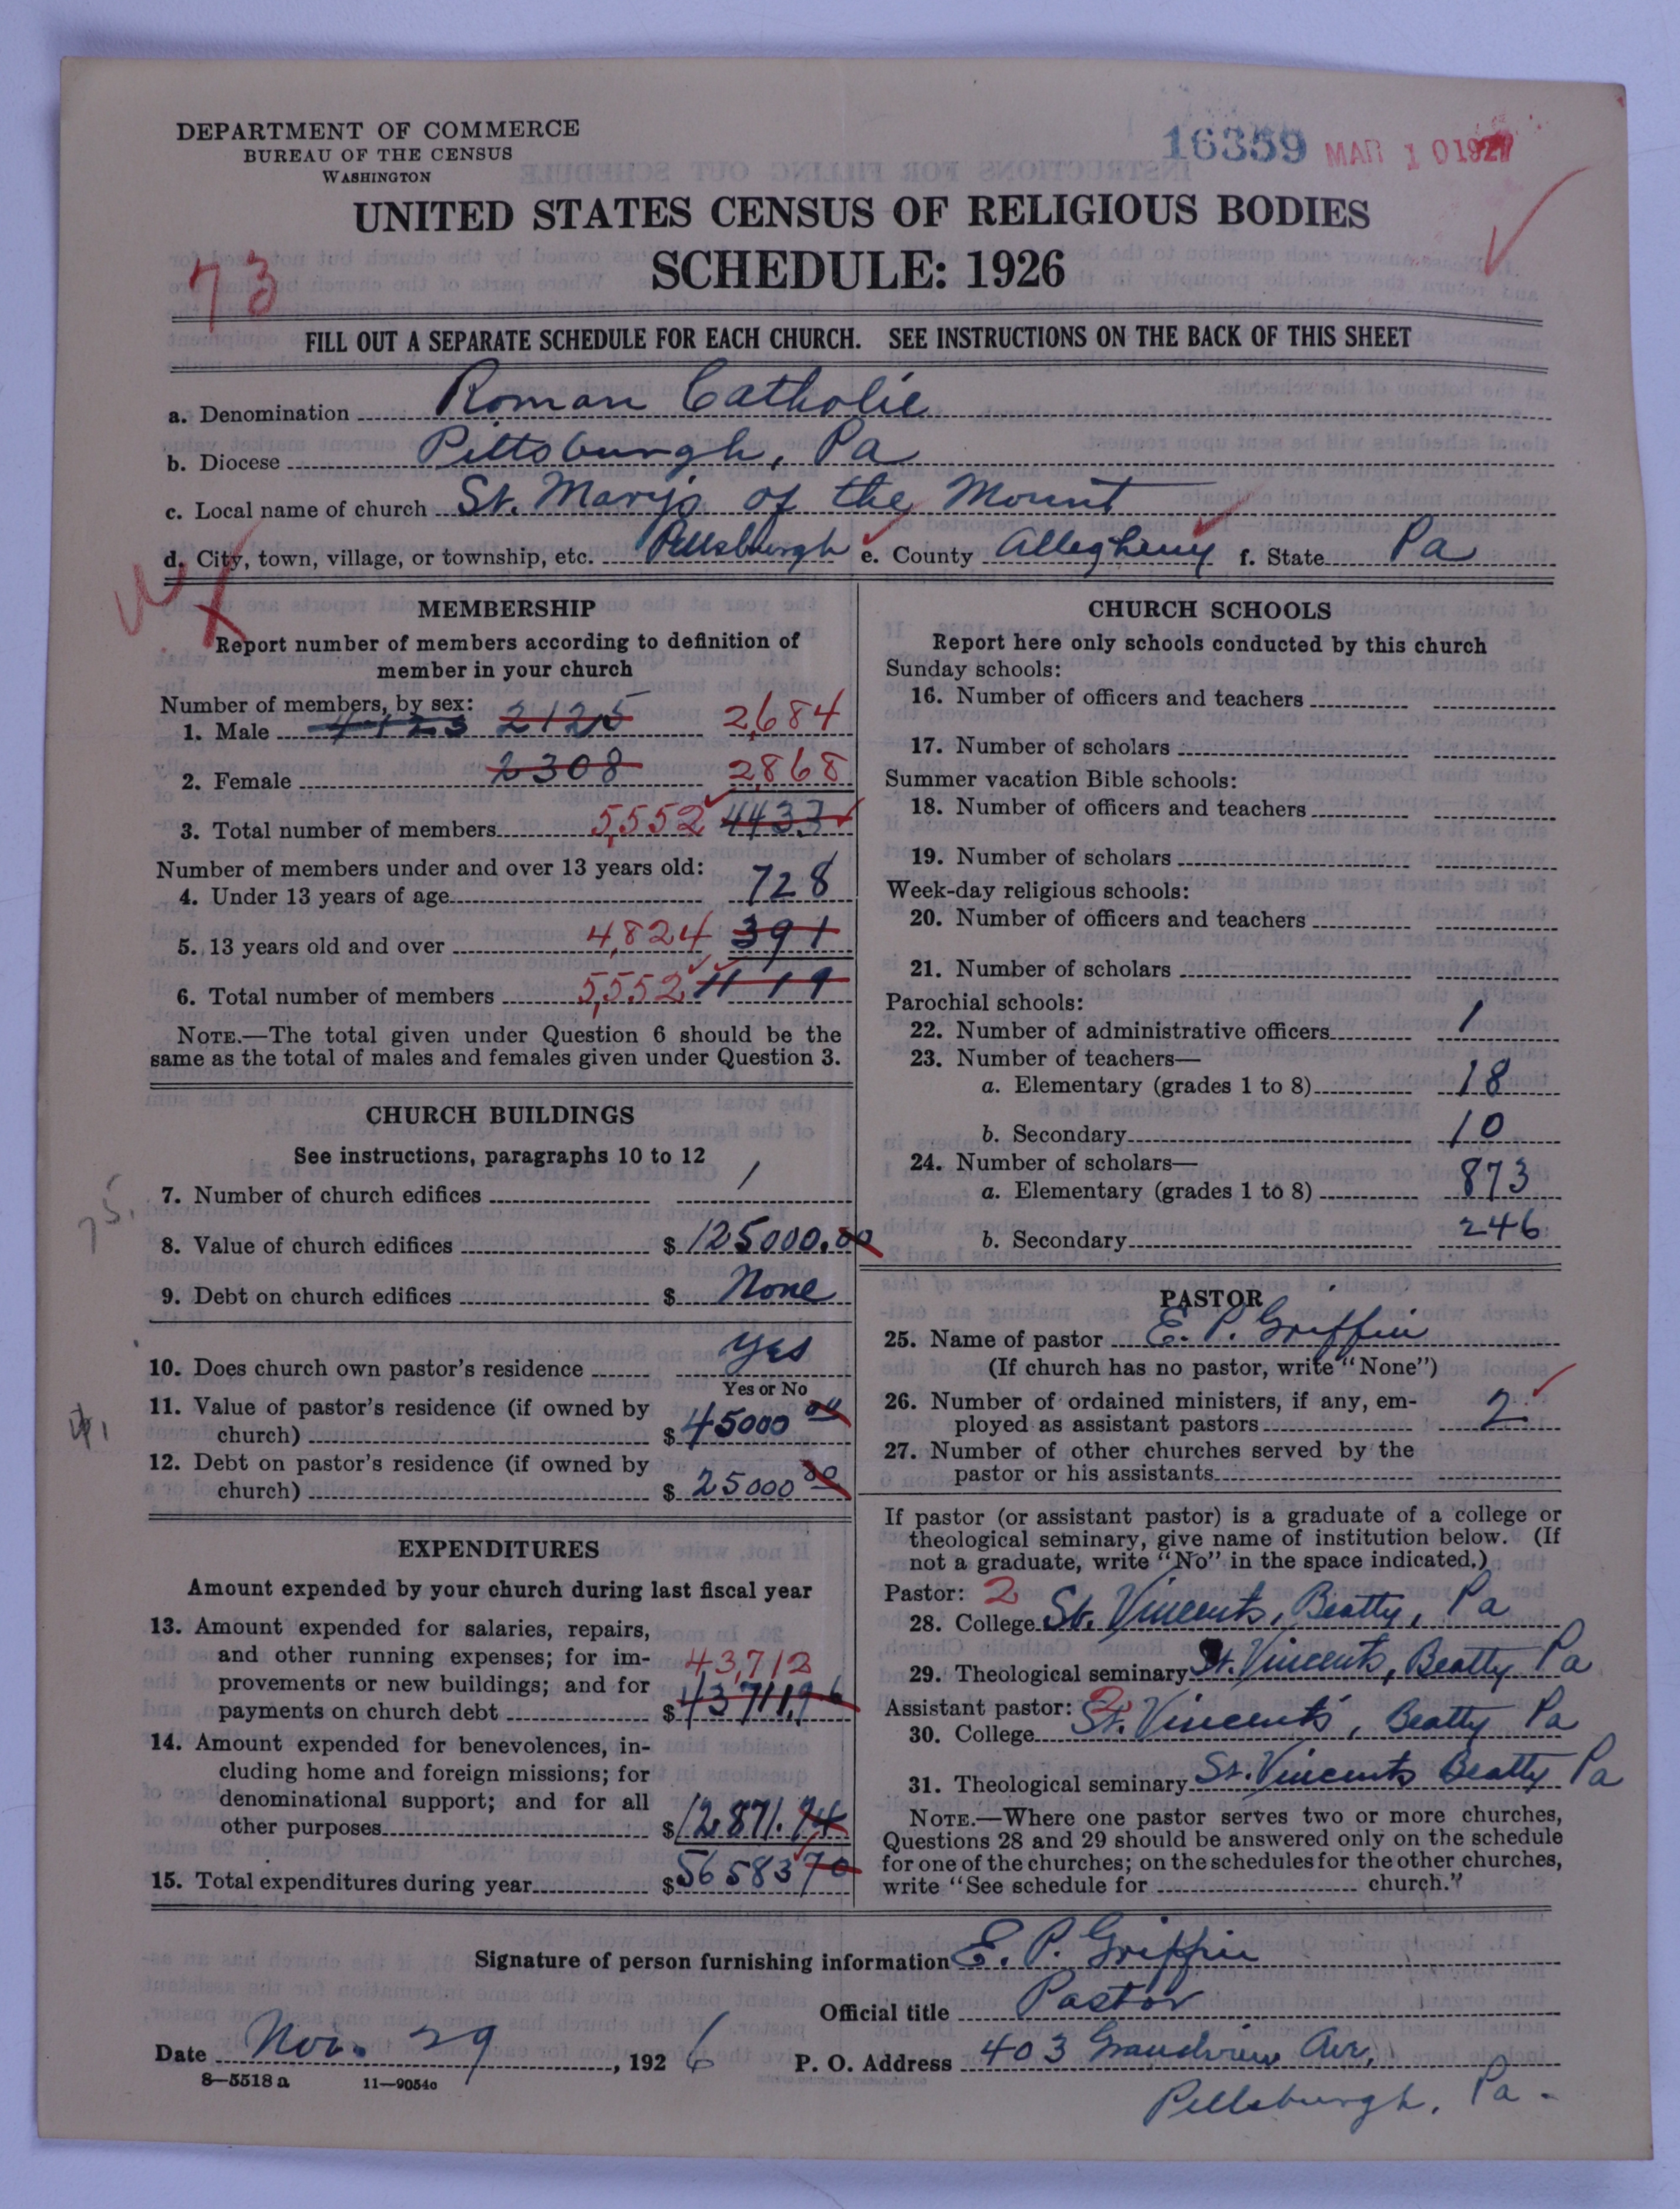 DEPARTMENT OF COMMERCE
BUREAU OF THE CENSUS
WASHINGTON
16359 MAR 10 1927
UNITED STATES CENSUS OF RELIGIOUS BODIES
SCHEDULE: 1926
73
FILL OUT A SEPARATE SCHEDULE FOR EACH CHURCH. SEE INSTRUCTIONS ON THE BACK OF THIS SHEET
a. Denomination Roman Catholic
b. Diocese Pittsburgh, Pa
c. Local name of church St. Marys of the Mount
d. City, town, village, or township, etc. Pittsburgh e. County Allegheny f. State Pa
MEMBERSHIP
Report number of members according to definition of
member in your church
Number of members, by sex:
1. Male 4123 2125 2,684
2. Female 2308 2,868
3. Total number of members 5,552 4433
Number of members under and over 13 years old:
4. Under 13 years of age 728
5. 13 years old and over 4,824 391
6. Total number of members 5,552 1119
NOTE.—The total given under Question 6 should be the
same as the total of males and females given under Question 3.
CHURCH BUILDINGS
See instructions, paragraphs 10 to 12
7. Number of church edifices 1
75.
8. Value of church edifices $ 125000.00
9. Debt on church edifices $ None
10. Does church own pastor's residence yes
Yes or No
11. Value of pastor's residence (if owned by
church) $ 45000 00
12. Debt on pastor's residence (if owned by
church) $ 25000 00
EXPENDITURES
Amount expended by your church during last fiscal year
13. Amount expended for salaries, repairs,
and other running expenses; for im-
provements or new buildings; and for 43,712
payments on church debt $ 43711.96
14. Amount expended for benevolences, in-
cluding home and foreign missions; for
denominational support; and for all
other purposes $ 12.871.74
15. Total expenditures during year $ 56583 70
CHURCH SCHOOLS
Report here only schools conducted by this church
Sunday schools:
16. Number of officers and teachers
17. Number of scholars
Summer vacation Bible schools:
18. Number of officers and teachers
19. Number of scholars
Week-day religious schools:
20. Number of officers and teachers
21. Number of scholars
Parochial schools:
22. Number of administrative officers 1
23. Number of teachers—
a. Elementary (grades 1 to 8) 18
b. Secondary 10
24. Number of scholars—
a. Elementary (grades 1 to 8) 873
b. Secondary 246
PASTOR
25. Name of pastor E. P. Griffin
(If church has no pastor, write "None")
26. Number of ordained ministers, if any, em-
ployed as assistant pastors 2
27. Number of other churches served by the
pastor or his assistants
If pastor (or assistant pastor) is a graduate of a college or
theological seminary, give name of institution below. (If
not a graduate, write "No" in the space indicated.)
Pastor: 2
28. College St. Vincents, Beatty, Pa
29. Theological seminary St. Vincents, Beatty Pa
Assistant pastor: 2
30. College St. Vincents, Beatty Pa
31. Theological seminary St. Vincents Beatty Pa
NOTE.—Where one pastor serves two or more churches,
Questions 28 and 29 should be answered only on the schedule
for one of the churches; on the schedules for the other churches,
write "See schedule for church."
Signature of person furnishing information E. P. Griffin
Official title Pastor
Date Nov. 29, 1926 P. O. Address 403 Grandview Ave,
8—5518a 11—9054c
Pittsburgh, Pa.